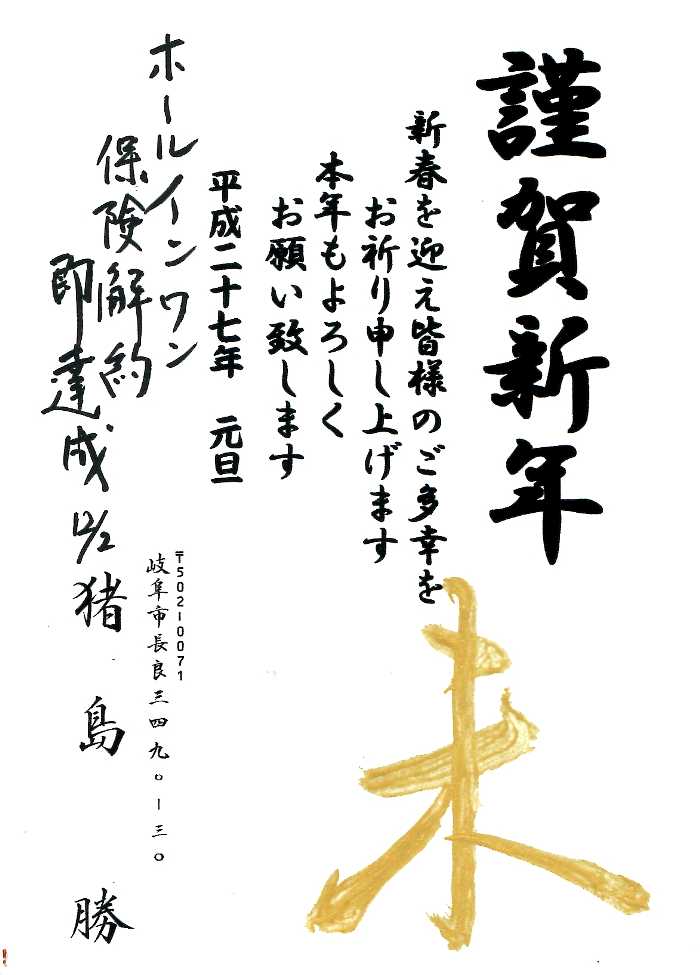 謹賀新年
新春を迎え皆様のご多幸を
お祈り申し上げます
本年もよろしく
お願い致します
平成二十七年 元旦
ホールインワン
保険解約
即達成 12/2
〒502-0071
岐阜市長良三四九〇ー三〇
猪島 勝
未